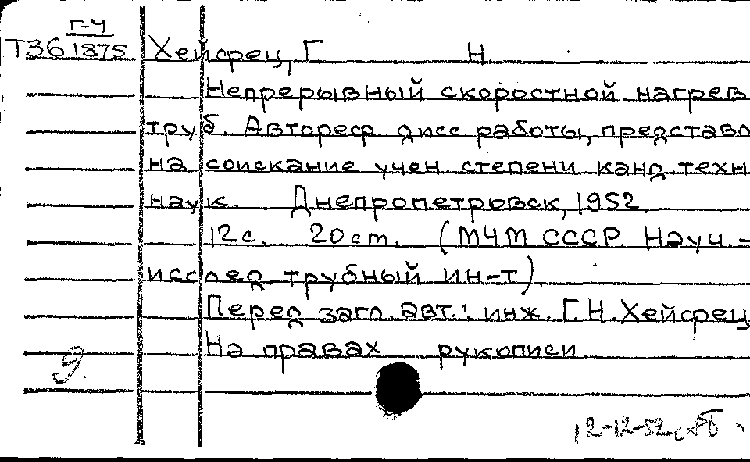 Г-4
Т36 1875 Хейфец, Г Н
Непрерывный скоростной нагрев
труб. Автореф дисс работы, представл
на соискание учен степени канд техн
наук. Днепропетровск, 1952
12с. 20см. (МЧМ СССР Науч.-
исслед трубный ин-т)
Перед загл. авт.: инж. Г.Н. Хейфец
На правах рукописи
12-12-52